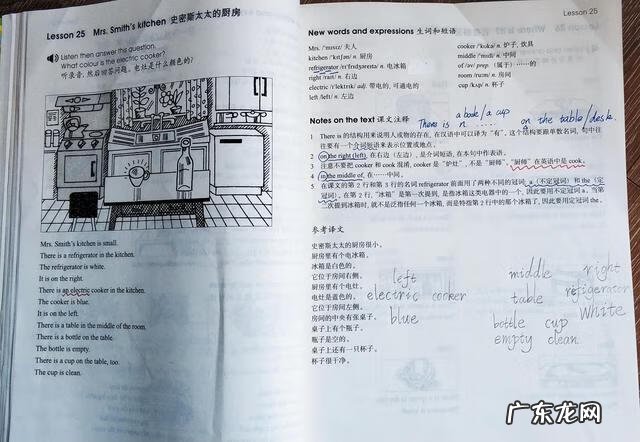 Lesson 25 Mrs. Smith's kitchen 史密斯太太的厨房
Listen then answer this question.
What colour is the electric cooker?
听录音,然后回答问题。电灶是什么颜色的?
Mrs. Smith's kitchen is small.
There is a refrigerator in the kitchen.
The refrigerator is white.
It is on the right.
There is an electric cooker in the kitchen.
The cooker is blue.
It is on the left.
There is a table in the middle of the room.
There is a bottle on the table.
The bottle is empty.
There is a cup on the table, too.
The cup is clean.
Lesson 25
New words and expressions 生词和短语
Mrs. /ˈmɪsɪz/ 夫人
kitchen /ˈkɪtʃən/ n. 厨房
refrigerator /rɪˈfrɪdʒəreɪtə/ n. 电冰箱
right /raɪt/ n. 右边
electric /ɪˈlektrɪk/ adj. 带电的, 可通电的
left /left/ n. 左边
cooker /ˈkʊkə/ n. 炉子, 炊具
middle /ˈmɪdl/ n. 中间
of /əv/ prep. (属于)……的
room /ruːm/ n. 房间
cup /kʌp/ n. 杯子
Notes on the text 课文注释
a book / a cup
There is n. ...... on the table/desk.
1 There is 的结构用来说明人或物的存在, 在汉语中可以译为“有”。这个结构要跟单数名词, 句中往
往要有一个介词短语来表示位置或地点。
2 on the right (left), 在右边(左边), 是介词短语, 在本句中作表语。
3 注意不要把 cooker 和 cook 混淆, cooker 是“炉灶”, 不是“厨师”。“厨师”在英语中是 cook。
4 in the middle of, 在……中间。
5 在课文的第 2 行和第 3 行的名词 refrigerator 前面用了两种不同的冠词 a (不定冠词) 和 the (定
冠词)。在第 2 行, “冰箱”是第一次提到, 是指冰箱这类电器中的一个, 因此要用不定冠词 a。当第
二次提到冰箱时, 就不是泛指任何一个冰箱, 而是特指第 2 行中的那个冰箱了, 因此要用定冠词 the。
参考译文
史密斯太太的厨房很小。
厨房里有个电冰箱。
冰箱是白色的。
它位于房间右侧。
厨房里有个电灶。
电灶是蓝色的。
它位于房间左侧。
房间的中央有张桌子。
桌子上有个瓶子。
瓶子是空的。
桌子上还有一只杯子。
杯子很干净。
left middle right
electric cooker table refigerator
blue bottle cup White
empty clean
广东龙网